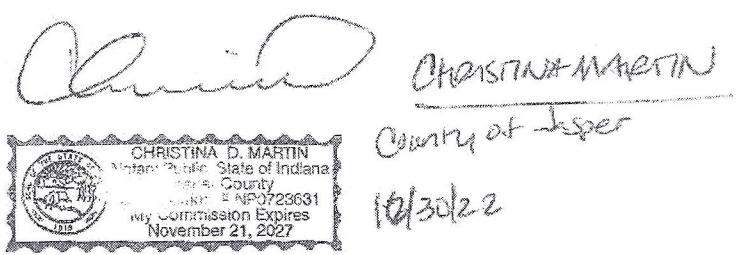 CHRISTINA MARTIN
County of Jasper
10/30/22
CHRISTINA D. MARTIN
Notary Public, State of Indiana
County
# NP0723631
My Commission Expires
November 21, 2027
SEAL OF THE STATE OF
1816